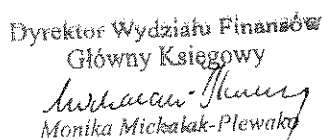 Dyrektor Wydziału Finansów
Główny Księgowy
Monika Michalak-Plewako